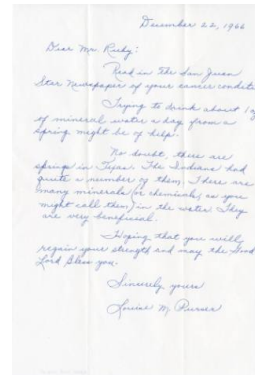 December 22, 1966
Dear Mr. Ruby:
Read in the San Juan
Star Newspaper of your cancer condit
Trying to drink about 1
of mineral water a day from a
spring might be of help.
No doubt there are
springs in Texas. The Indians had
quite a number of them. There are
many minerals (or chemicals, as you
might call them) in the water. They
are very beneficial.
Hoping that you will
regain your strength and may the Good
Lord Bless you.
Sincerely yours
Louise M.